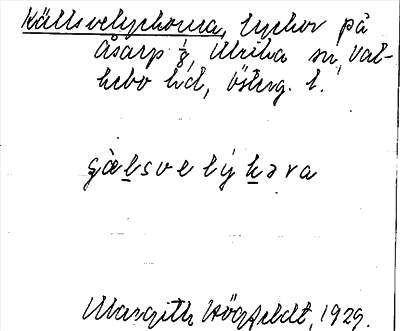 Källsvelyckorna, lyckor på
Åsarp 1/8, Ulrika sn, Val-
kebo hd, Österg. l.
gä̀lsvelýkəra
Margith Högfeldt, 1929.